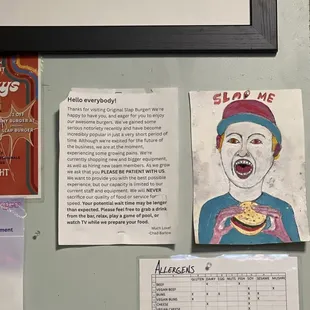 Hello everybody!
Thanks for visiting Original Slap Burger! We're
happy to have you, and eager for you to enjoy
our awesome burgers. We've gained some
serious notoriety recently and have become
incredibly popular in just a very short period of
time. Although we're excited for the future of
the business, we are at the moment,
experiencing some growing pains. We're
currently shopping new and bigger equipment,
as well as hiring new team members. As we grow
we ask that you PLEASE BE PATIENT WITH US.
We want to provide you with the best possible
experience, but our capacity is limited to our
current staff and equipment. We will NEVER
sacrifice our quality of food or service for
speed. Your potential wait time may be larger
than expected. Please feel free to grab a drink
from the bar, relax, play a game of pool, or
watch TV while we prepare your food.
Much Love!
SLAP ME
ALLERGENS
GLUTEN DAIRY EGG NUTS FISH SOY
BEEF
VEGAN BEEF
BUNS
VEGAN BUNS
CHEESE